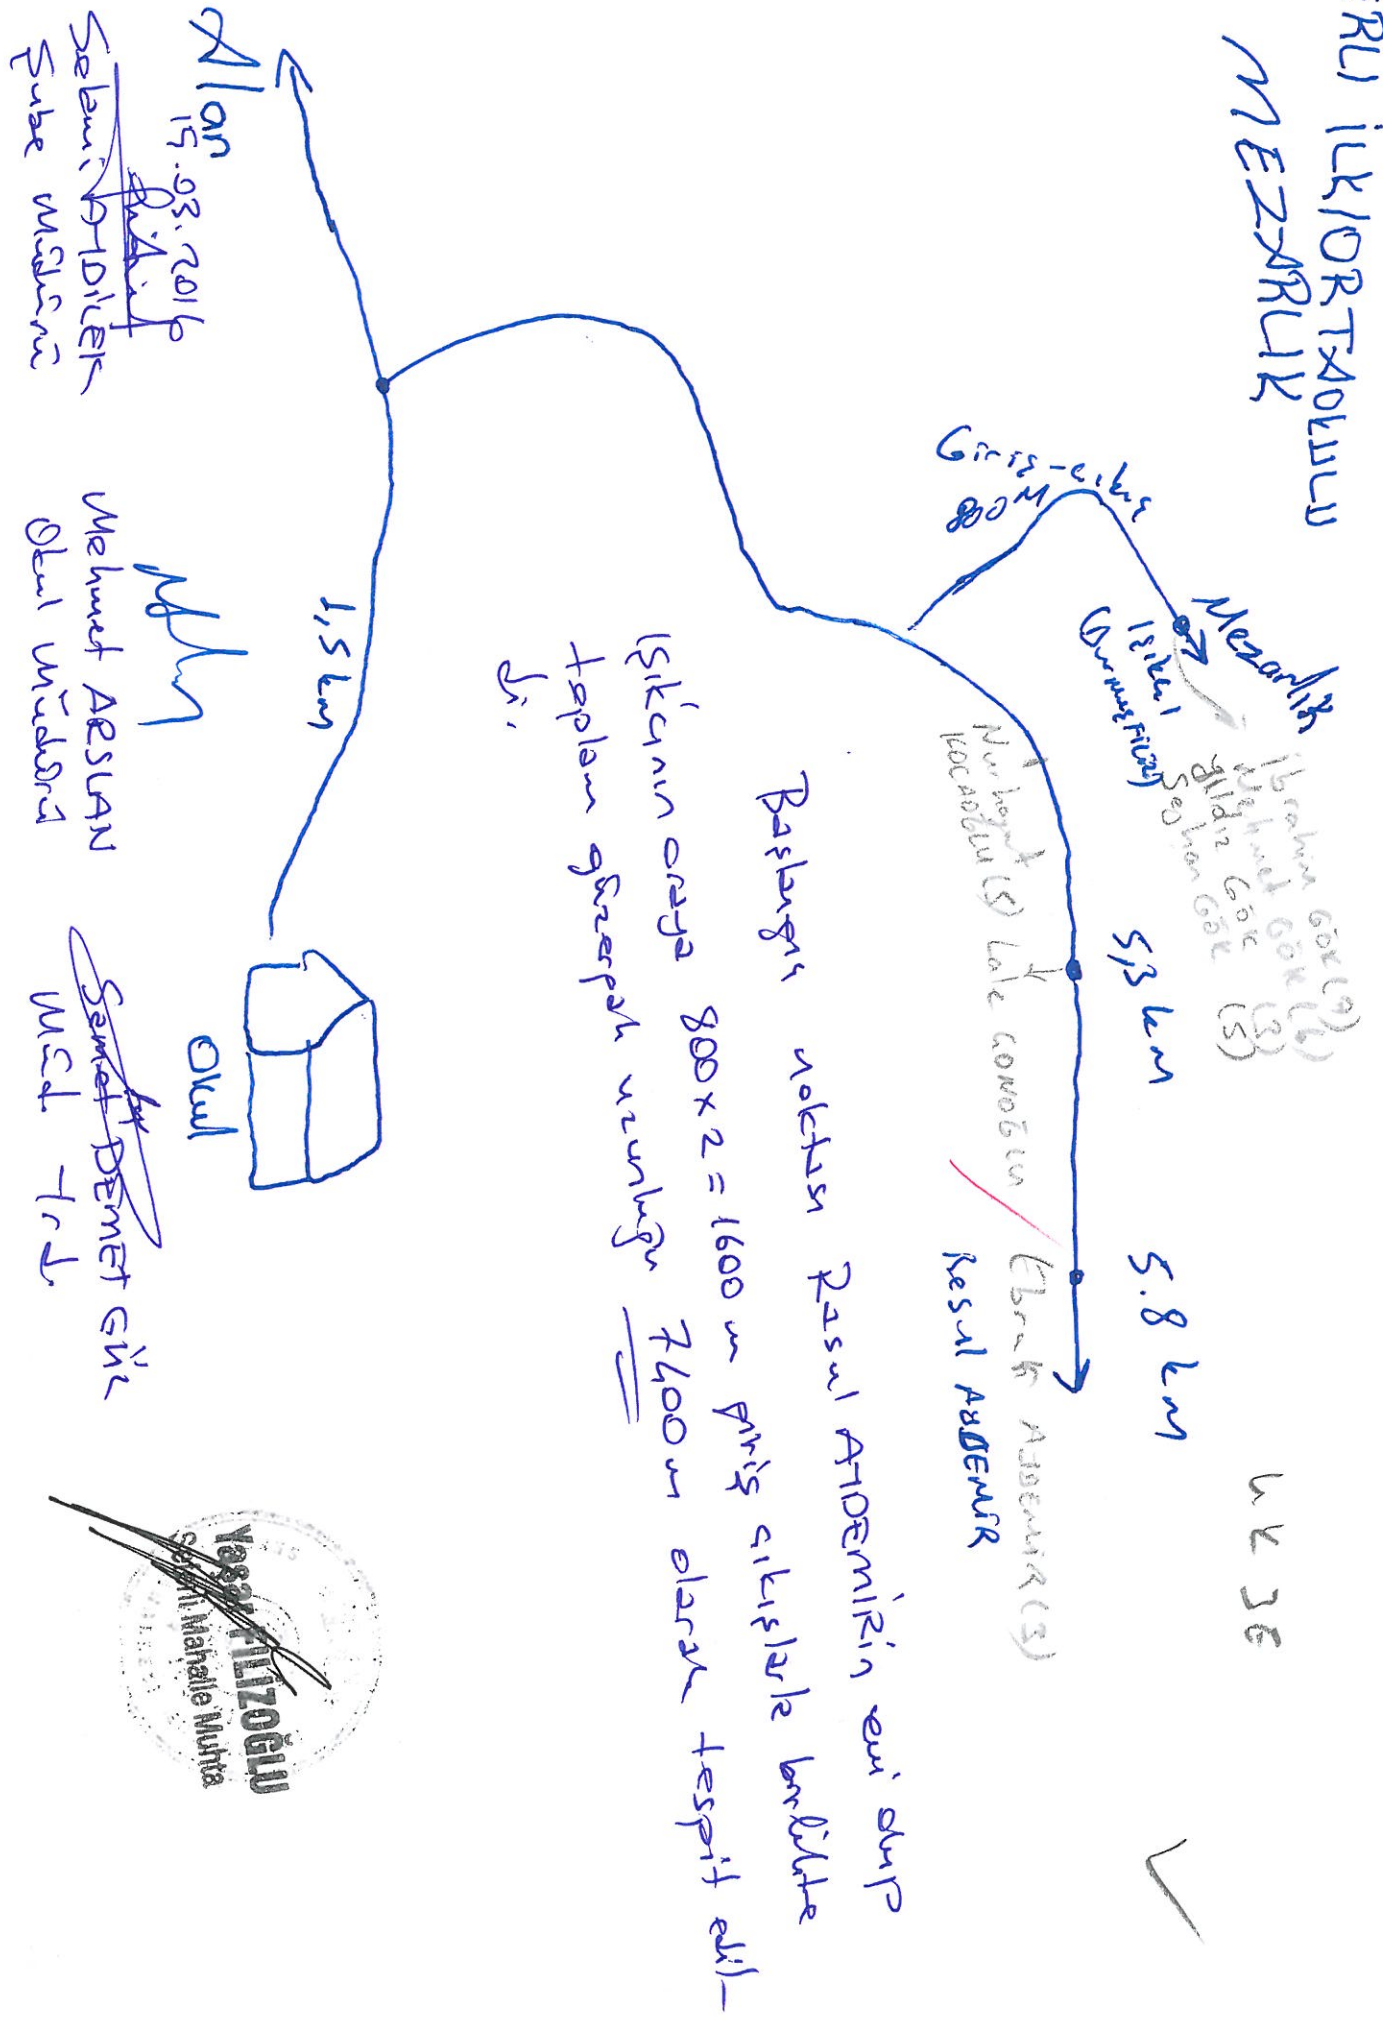 RLI İLK/ORTAOKULU
MEZARLIK
Giriş-çıkış
800 M
Mezarlık
Işıkçı
İbrahim GÖK (7)
Mehmet GÖK (6)
Yıldız GÖK (3)
Seohan GÖK (5)
5,3 km
5.8 km
Nurhayat
KOCAOĞLU (5)
Lale
Ebrar AYDEMİR (3)
Resul AYDEMİR
Başlangıç noktası Resul AYDEMİRin evi olup
Işıkçının oraya 800x2=1600 m giriş çıkışlarla birlikte
toplam güzergah uzunluğu 7400 m olarak tespit edil-
di.
1,5 km
Alan
Okul
15.03.2016
AYDİLEK
Şube Müdürü
Mehmet ARSLAN
Okul Müdürü
Samet DEMET GÜL
Müd Yrd.
Yaşar FİLİZOĞLU
Mahalle Muhta